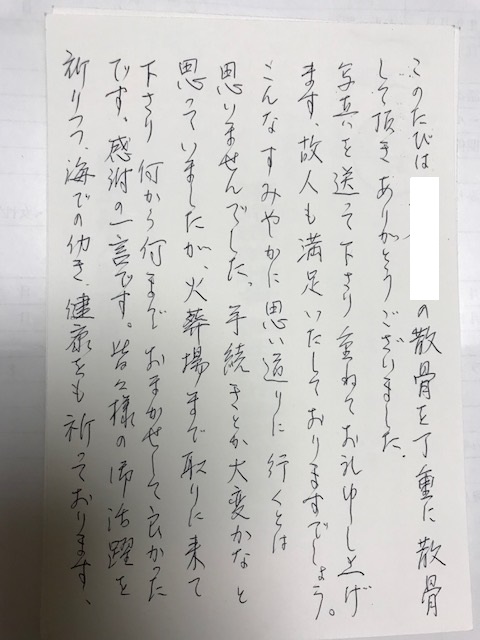 このたびは の散骨を丁重に散骨
して頂きありがとうございました。
写真を送って下さり重ねてお礼申し上げ
ます。故人も満足いたしておりますでしょう。
こんなすみやかに思い通りに行くとは
思いませんでした。手続きとか大変かなと
思っていましたが、火葬場まで取りに来て
下さり何から何までおまかせして良かった
です。感謝の一言です。皆々様の御活躍を
祈りつつ、海での働き、健康をも祈っております、